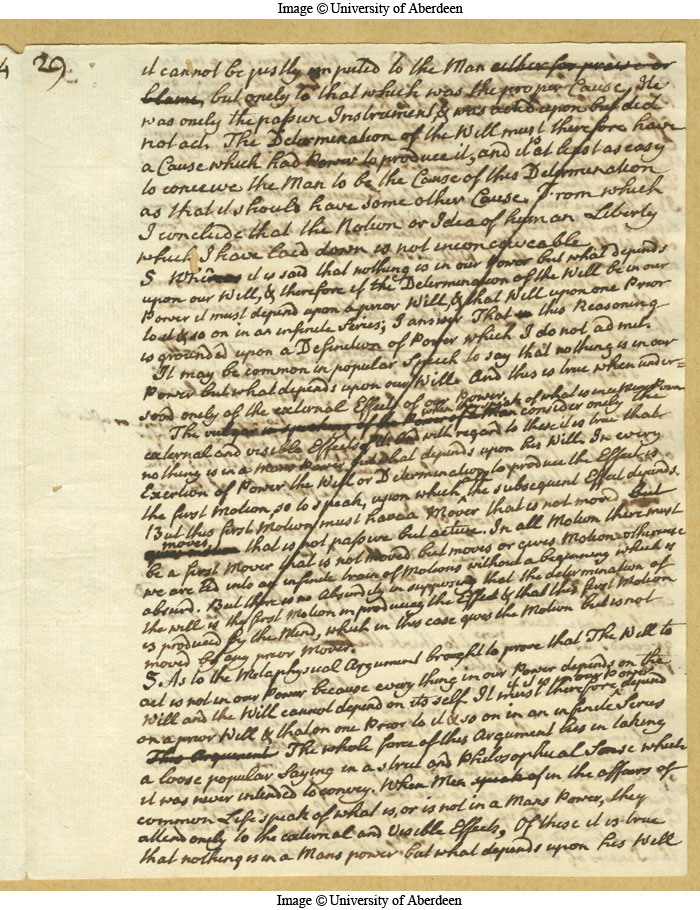 Image © University of Aberdeen
4 29
it cannot be justly imputed to the Man either for praise or
blame, but onely to that which was the proper Cause, He
was onely the passive Instrument, & was acted upon but did
not act. The Determination of the Will must therefore have
a Cause which had Power to produce it, and it is at least as easy
to conceive the Man to be the Cause of this Determination
as that it should have some other Cause. From which
I conclude that the Notion or Idea of human Liberty
which I have laid down is not inconceivable
5 Whereas it is said that nothing is in our Power but what depends
upon our Will, & therefore if the Determination of the Will be in our
Power it must depend upon a prior Will & that Will upon one Prior
to it & so on in an infinite Series; I answer That this Reasoning
is grounded upon a Definition of Power which I do not admit.
It may be common in popular Speech to say that nothing is in our
Power but what depends upon our Will. And this is true when under=
stood onely of the external Effects of our Power.
The vulgar in speaking of the Power of a Man when they speak of what is in a Mans Power consider only the
external and visible Effects and with regard to these it is true that
nothing is in a Mans Power but what depends upon his Will. In every
Exertion of Power the Will or Determination to produce the Effect is
the first Motion, so to speak, upon which all the subsequent Effect depends.
But this first Motion must have a Mover that is not moved but
moves, that is not passive but active. In all Motion there must
be a first Mover that is not moved but moves or gives Motion otherwise
we are led into an infinite train of Motions without a beginning which is
absurd. But there is no Absurdity in supposing that the determination of
the will is the first Motion in producing the Effect & that this first Motion
is produced by the Mind, which in this case gives the Motion but is not
moved by any prior Mover.
5. As to the Metaphysical Argument brought to prove that The Will to
act is not in our Power because every thing in our Power depends on the
Will and the Will cannot depend on its self. If it is in our Power
It must therefore depend
on a prior Will & that on one Prior to it & so on in an infinite Series
This Argument The whole force of this Argument lies in taking
a loose popular Saying in a strict and Philosophical Sense which
it was never intended to convey. When Men speak of in the affairs of
common Life speak of what is, or is not in a Mans Power, they
attend onely to the external and visible Effects, Of these it is true
that nothing is in a Mans power but what depends upon his Will
Image © University of Aberdeen